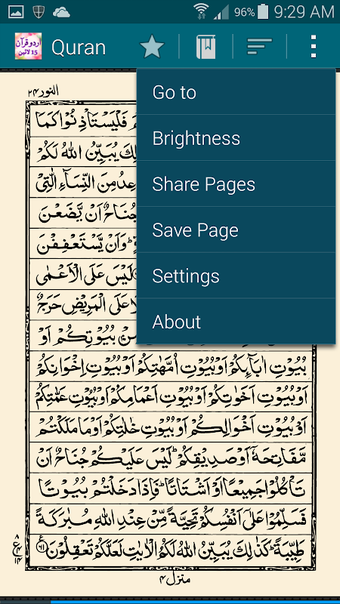 96% 9:29 AM
اردو قرآن
15 لائين
Quran
Go to
Brightness
Share Pages
Save Page
Settings
About
النور ٢٤
فَلْيَسْتَأْذِنُوْا كَمَا
يُبَيِّنُ اللّٰهُ لَكُمْ
مِنَ النِّسَآءِ الّٰتِيْ
جُنَاحٌ اَنْ يَّضَعْنَ
وَاَنْ يَّسْتَعْفِفْنَ
لَيْسَ عَلَى الْاَعْمٰى
عَلَى الْمَرِيْضِ حَرَجٌ
مِنْۢ بُيُوْتِكُمْ اَوْ
بُيُوْتِ اٰبَآئِكُمْ اَوْ بُيُوْتِ اُمَّهٰتِكُمْ اَوْ بُيُوْتِ اِخْوَانِكُمْ
اَوْ بُيُوْتِ اَخَوٰتِكُمْ اَوْ بُيُوْتِ اَعْمَامِكُمْ اَوْ بُيُوْتِ عَمّٰتِكُمْ
اَوْ بُيُوْتِ اَخْوَالِكُمْ اَوْ بُيُوْتِ خٰلٰتِكُمْ اَوْ مَا مَلَكْتُمْ
مَّفَاتِحَهٗٓ اَوْ صَدِيْقِكُمْ ؕ لَيْسَ عَلَيْكُمْ جُنَاحٌ اَنْ
تَاْكُلُوْا جَمِيْعًا اَوْ اَشْتَاتًا ؕ فَاِذَا دَخَلْتُمْ بُيُوْتًا
فَسَلِّمُوْا عَلٰٓى اَنْفُسِكُمْ تَحِيَّةً مِّنْ عِنْدِ اللّٰهِ مُبٰرَكَةً
طَيِّبَةً ؕ كَذٰلِكَ يُبَيِّنُ اللّٰهُ لَكُمُ الْاٰيٰتِ لَعَلَّكُمْ تَعْقِلُوْنَ ۝٦١
منزل ٤